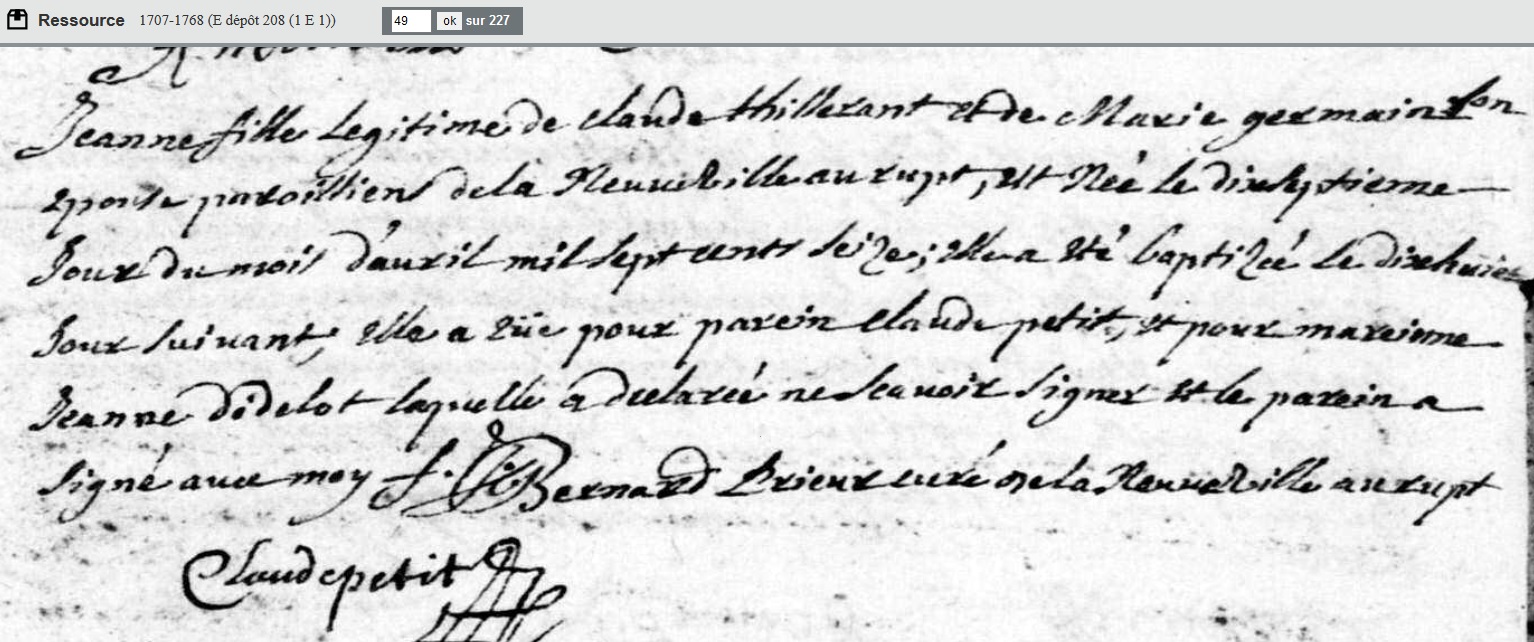 Ressource 1707-1768 (E dépôt 208 (1 E 1)) 49 ok sur 227
Jeanne fille legitime de claude thillerant et de Marie germain son
epouse paroissiens de la Neuueville au rupt, est Née le dixseptieme
Jour du mois d'auril mil sept cents seize; elle a eté baptizée le dixhuict
Jour suivant, elle a eüe pour parein Claude petit, et pour mareinne
Jeanne didelot laquelle a declareé ne scauoir signer et le parein a
signé auec moy f. Bernard Prieur curé de la Neuueville au rupt
Claude petit